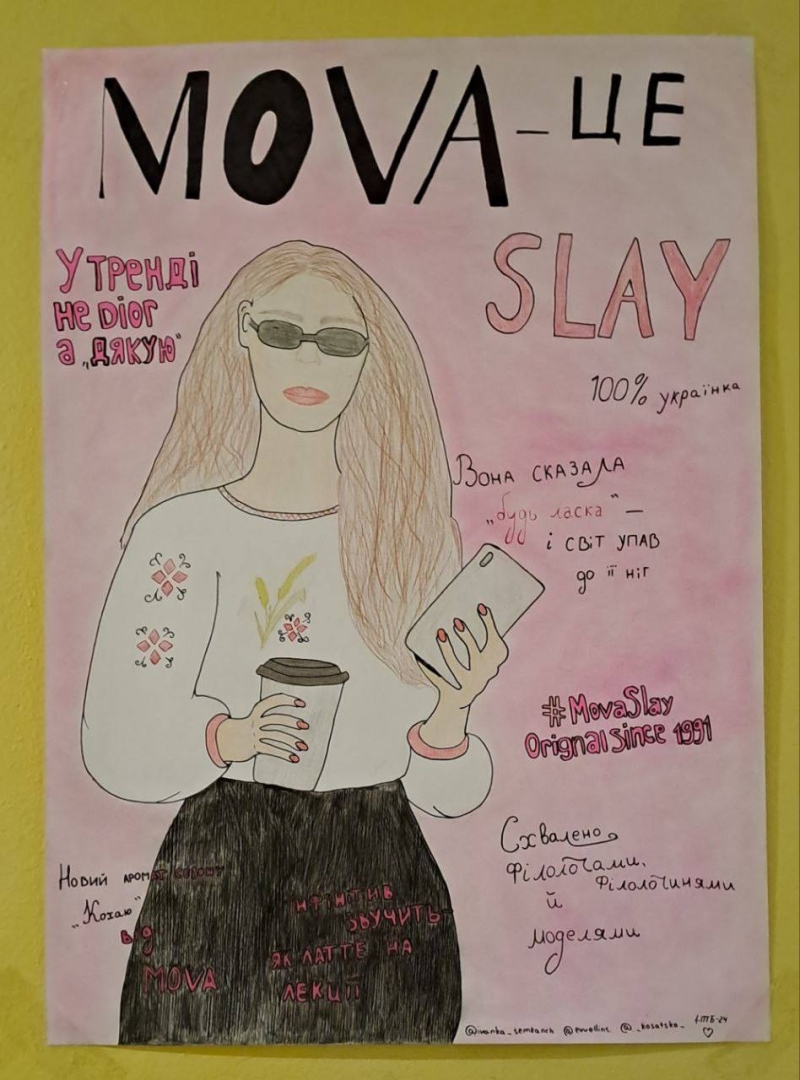 MOVA - ЦЕ
SLAY
У тренді
не Dior
а „дякую“
100% українка
Вона сказала
„будь ласка“ –
і світ упав
до її ніг
#MovaSlay
Orignal since 1991
Схвалено
філологами,
філологинями
й
моделями
Новий аромат сезону
„Кохаю“
від
MOVA
Інфінітив
звучить
як латте на
лекції